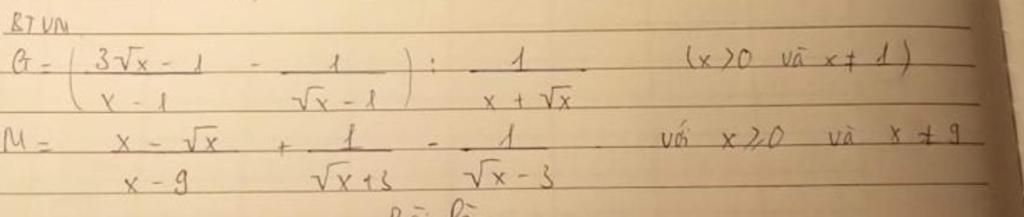 BTVN
G = ( (3√x - 1)/(x - 1) - 1/(√x - 1) ) : 1/(x + √x) (x > 0 và x ≠ 1)
M = (x - √x)/(x - 9) + 1/(√x + 3) - 1/(√x - 3) với x ≥ 0 và x ≠ 9